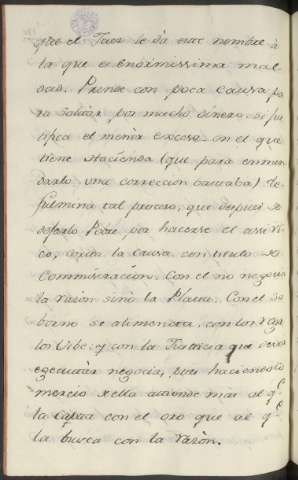 que el Juez le da este nombre à
la que es Enormissima mal
dad. Prende con poca causa pa
ra soltàr por mucho dinero. Jus
tifica el menòr exceso en el que
tiene Hacienda (que para enmen
darlo una correccion bastaba) le
fulmina tal proceso, que despues de
dejarlo Pobre por hacerse el assi Ri
co, dexa la causa con titulo de
Commiseracion. Con el no negocia
la razòn sinò la Plata. Con el So
borno se alimenta, con los rega
los vibe. y con la Justicia que deve
egecutàr negocia, pues haciendo co
mercio de ella atiende màs al q.e
la compra con el oro que al q.e
la busca con la razòn.